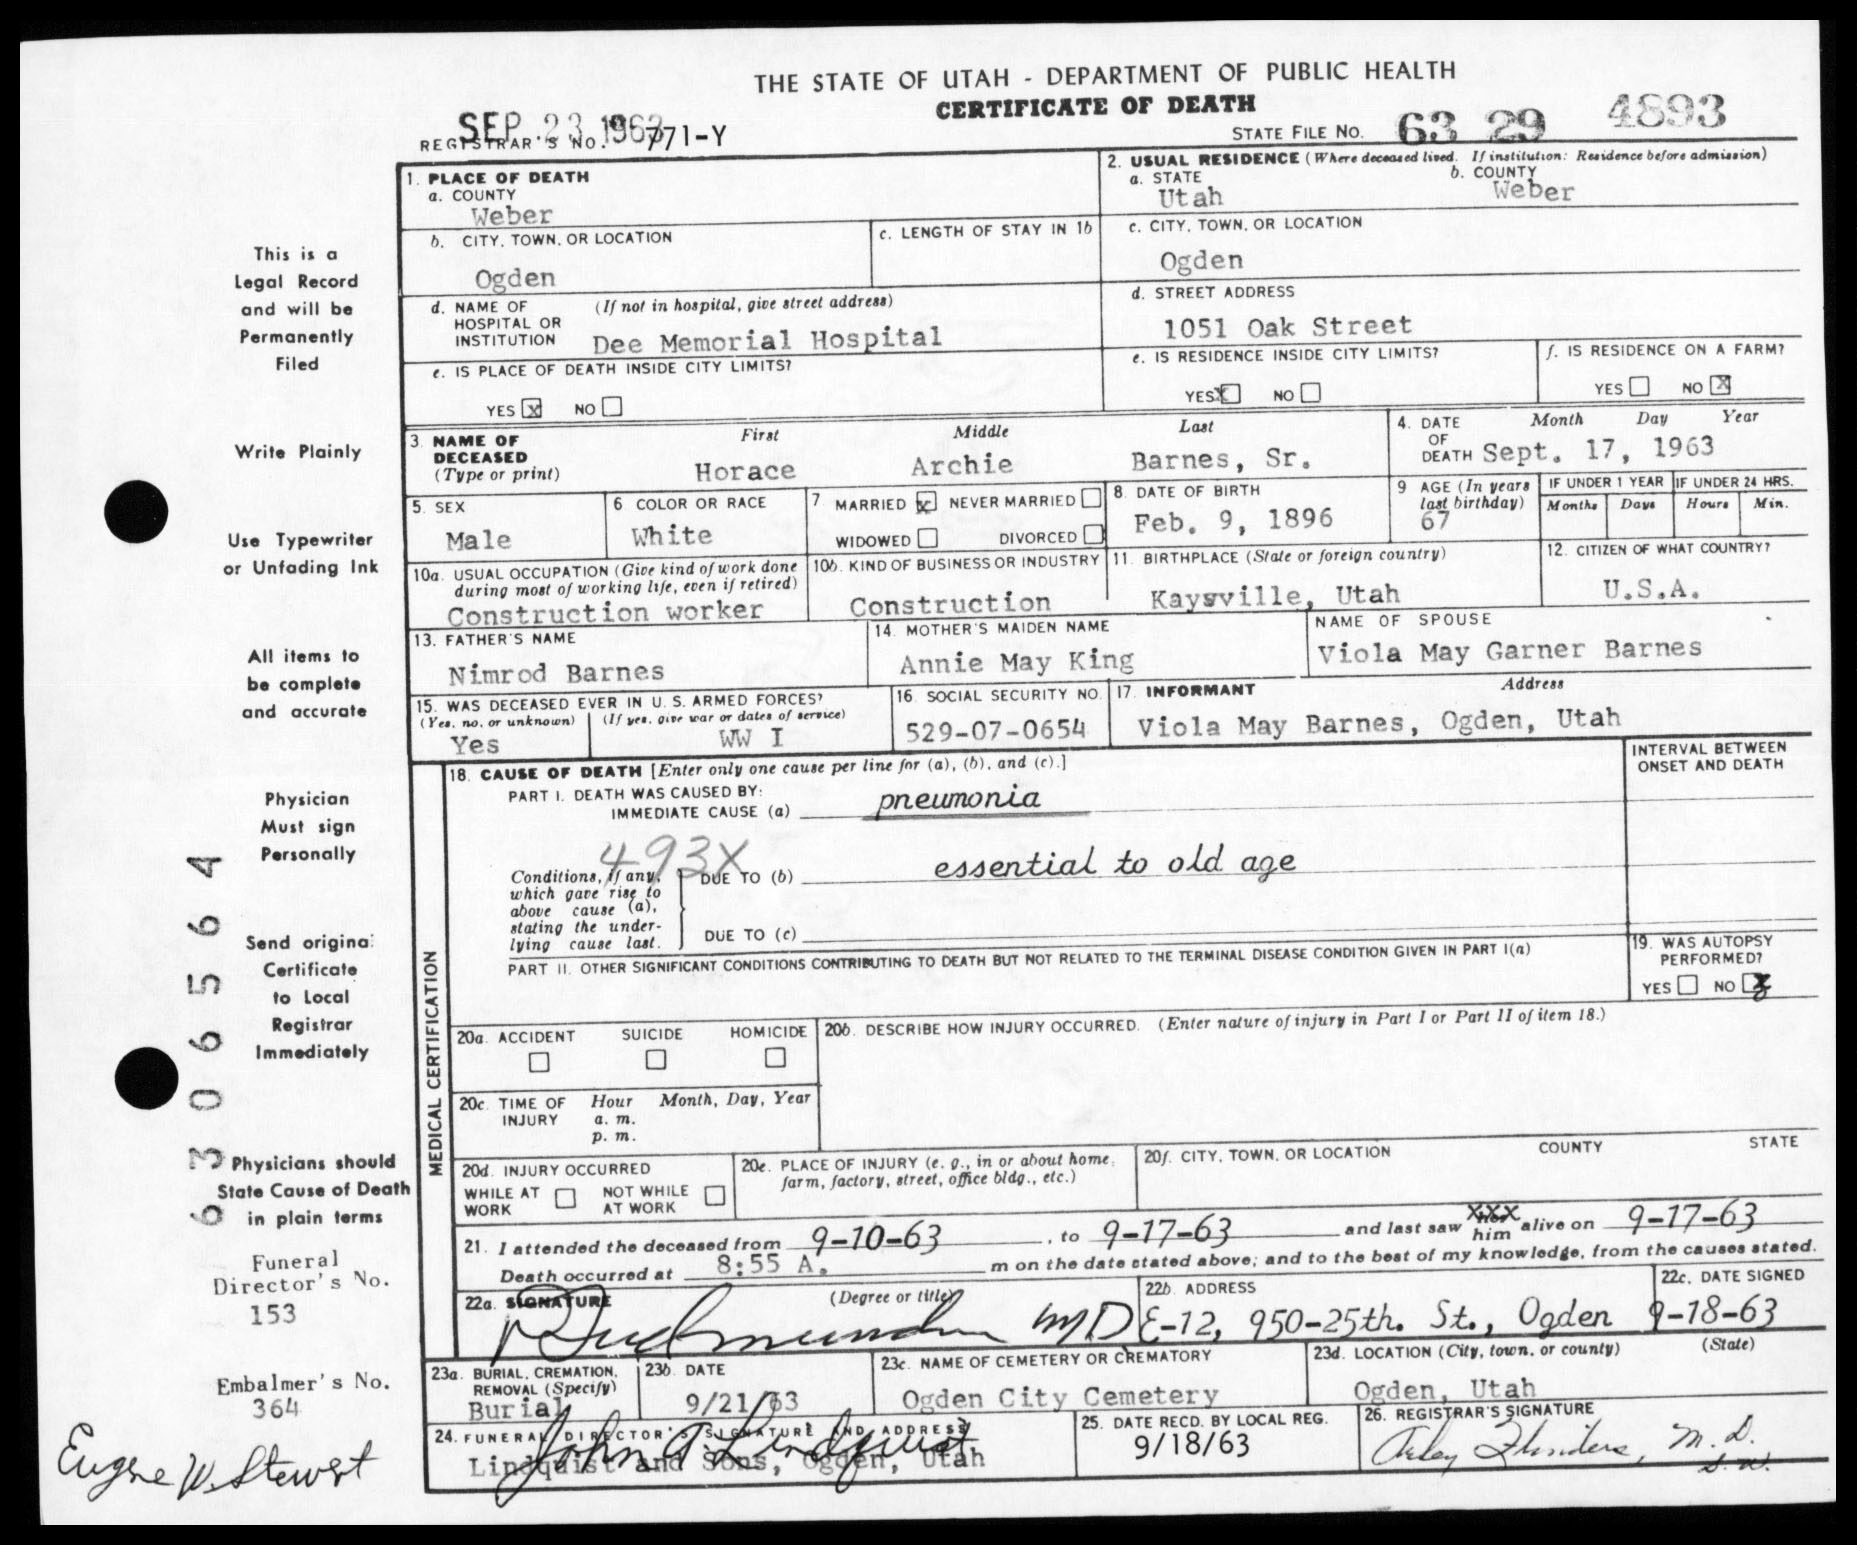 THE STATE OF UTAH - DEPARTMENT OF PUBLIC HEALTH
CERTIFICATE OF DEATH
SEP 23 1963
REGISTRAR'S NO. 771-Y
STATE FILE NO. 63 29 4893
1. PLACE OF DEATH
a. COUNTY
Weber
2. USUAL RESIDENCE (Where deceased lived. If institution: Residence before admission)
a. STATE
Utah
b. COUNTY
Weber
b. CITY, TOWN, OR LOCATION
Ogden
c. LENGTH OF STAY IN 1b
c. CITY, TOWN, OR LOCATION
Ogden
d. NAME OF HOSPITAL OR INSTITUTION
(If not in hospital, give street address)
Dee Memorial Hospital
d. STREET ADDRESS
1051 Oak Street
e. IS PLACE OF DEATH INSIDE CITY LIMITS?
YES X NO
e. IS RESIDENCE INSIDE CITY LIMITS?
YES X NO
f. IS RESIDENCE ON A FARM?
YES NO X
3. NAME OF DECEASED
(Type or print)
First Middle Last
Horace Archie Barnes, Sr.
4. DATE OF DEATH
Month Day Year
Sept. 17, 1963
5. SEX
Male
6 COLOR OR RACE
White
7 MARRIED X NEVER MARRIED
WIDOWED DIVORCED
8. DATE OF BIRTH
Feb. 9, 1896
9 AGE (In years last birthday)
67
IF UNDER 1 YEAR
Months Days
IF UNDER 24 HRS.
Hours Min.
10a. USUAL OCCUPATION (Give kind of work done during most of working life, even if retired)
Construction worker
10b. KIND OF BUSINESS OR INDUSTRY
Construction
11. BIRTHPLACE (State or foreign country)
Kaysville, Utah
12. CITIZEN OF WHAT COUNTRY?
U.S.A.
13. FATHER'S NAME
Nimrod Barnes
14. MOTHER'S MAIDEN NAME
Annie May King
NAME OF SPOUSE
Viola May Garner Barnes
15. WAS DECEASED EVER IN U. S. ARMED FORCES?
(Yes, no, or unknown) (If yes, give war or dates of service)
Yes WW I
16. SOCIAL SECURITY NO.
529-07-0654
17. INFORMANT Address
Viola May Barnes, Ogden, Utah
MEDICAL CERTIFICATION
18. CAUSE OF DEATH [Enter only one cause per line for (a), (b), and (c).]
INTERVAL BETWEEN ONSET AND DEATH
PART I. DEATH WAS CAUSED BY:
IMMEDIATE CAUSE (a) pneumonia
493X
Conditions, if any, which gave rise to above cause (a), stating the underlying cause last.
DUE TO (b) essential to old age
DUE TO (c)
PART II. OTHER SIGNIFICANT CONDITIONS CONTRIBUTING TO DEATH BUT NOT RELATED TO THE TERMINAL DISEASE CONDITION GIVEN IN PART I(a)
19. WAS AUTOPSY PERFORMED?
YES NO X
20a. ACCIDENT SUICIDE HOMICIDE
20b. DESCRIBE HOW INJURY OCCURRED. (Enter nature of injury in Part I or Part II of item 18.)
20c. TIME OF INJURY
Hour Month, Day, Year
a. m.
p. m.
20d. INJURY OCCURRED
WHILE AT WORK NOT WHILE AT WORK
20e. PLACE OF INJURY (e. g., in or about home, farm, factory, street, office bldg., etc.)
20f. CITY, TOWN, OR LOCATION COUNTY STATE
21. I attended the deceased from 9-10-63, to 9-17-63 and last saw XXX him alive on 9-17-63
Death occurred at 8:55 A. m on the date stated above; and to the best of my knowledge, from the causes stated.
22a. SIGNATURE (Degree or title)
MD
22b. ADDRESS
E-12, 950-25th. St., Ogden
22c. DATE SIGNED
9-18-63
23a. BURIAL, CREMATION, REMOVAL (Specify)
Burial
23b. DATE
9/21/63
23c. NAME OF CEMETERY OR CREMATORY
Ogden City Cemetery
23d. LOCATION (City, town, or county) (State)
Ogden, Utah
24. FUNERAL DIRECTOR'S SIGNATURE AND ADDRESS
John A. Lindquist
Lindquist and Sons, Ogden, Utah
25. DATE RECD. BY LOCAL REG.
9/18/63
26. REGISTRAR'S SIGNATURE
M. D.
This is a
Legal Record
and will be
Permanently
Filed
Write Plainly
Use Typewriter
or Unfading Ink
All items to
be complete
and accurate
Physician
Must sign
Personally
Send original
Certificate
to Local
Registrar
Immediately
Physicians should
State Cause of Death
in plain terms
6 3 0 6 5 6 4
Funeral
Director's No.
153
Embalmer's No.
364
Eugene W. Stewart